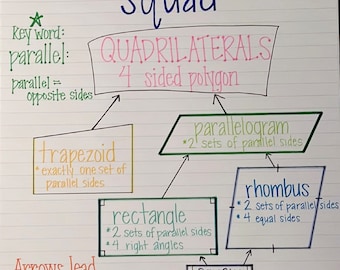 squad
Key word:
parallel:
parallel =
opposite sides
QUADRILATERALS
4 sided polygon
trapezoid
* exactly one set of
parallel sides
parallelogram
* 2 sets of parallel sides
rectangle
* 2 sets of parallel sides
* 4 right angles
rhombus
* 2 sets of parallel sides
* 4 equal sides
Arrows lead